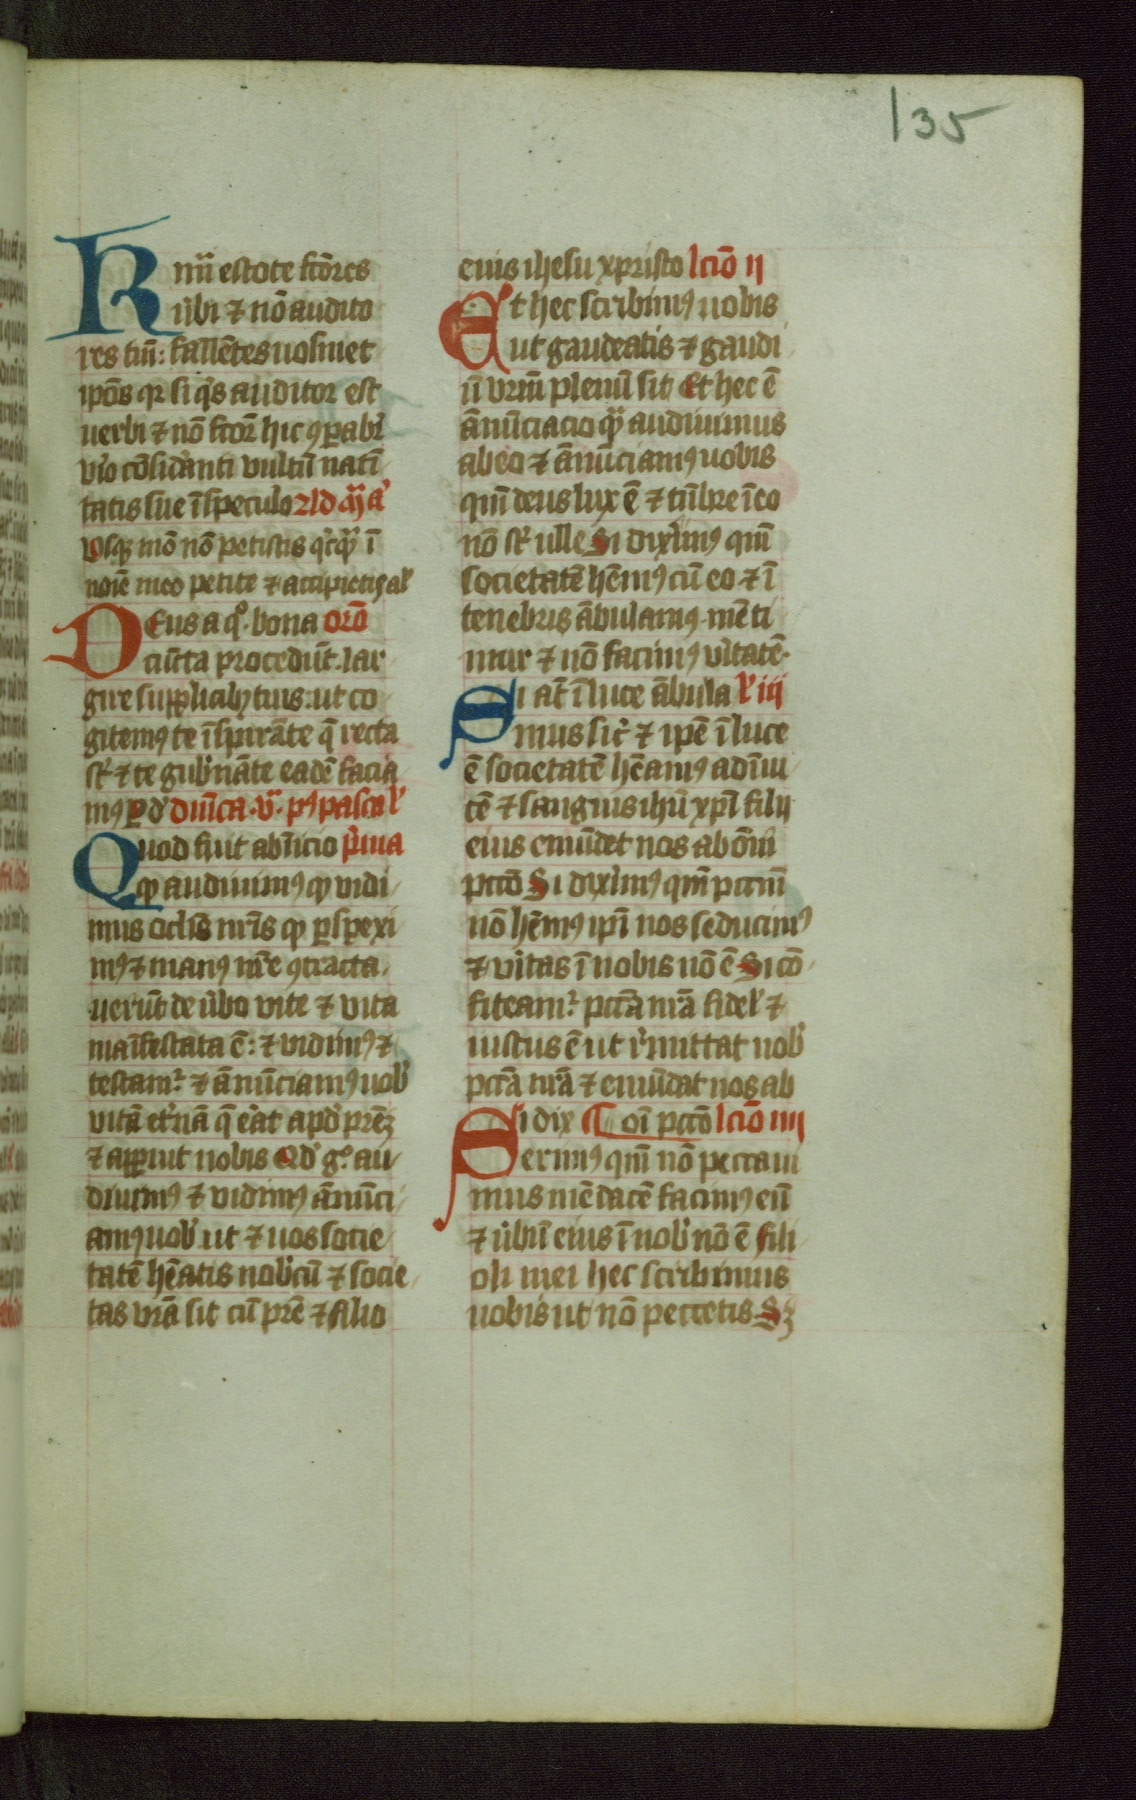 135
Rmi estote fcōres
ubi ⁊ nō audito
res tm̄: fallētes uosmet
ipōs qr si qͥs auditor est
uerbi ⁊ nō fcōr hic ꝯparabr̄
viro cōsidanti vultū nati
tatis sue ī speculo
Usqꝫ mō nō petistis qͥcqͣ ī
noīe meo petite ⁊ accipietis al
Deus a qͦ bona orō
cūcta procedūt. lar
gire supplicibꝫ tuis: ut co
gitemꝰ te īspirāte q̄ recta
st̄ ⁊ te gubnāte eadē facia
mꝰ ꝑ d Dnīca .v. pꝰ pasca
Quod fuit ab īicio pͥma
qͩ audiuimꝰ qͩ vidi
mus oclīs nrīs qͩ ꝑspexi
mꝰ ⁊ manꝰ nrē ꝯtracta
uerūt de ūbo vite ⁊ vita
maīfestata ē: ⁊ vidimꝰ ⁊
testamᷣ ⁊ ānūciamꝰ uob
vitā etnā q̄ eat apd prēꝫ
⁊ apparuit nobis Qd gͦ au
diuimꝰ ⁊ vidimꝰ ānūci
amꝰ uob ut ⁊ uos socie
tatē hēatis nobcū ⁊ socie
tas vrā sit cū prē ⁊ filio
eius ihesu xpristo lcīo ii
Et hec scribimꝰ uobis
ut gaudeatis ⁊ gaudi
ū vrm̄ plenū sit Et hec ē
ānūciacio qͣ audiuimus
ab eo ⁊ ānūciamꝰ uobis
qm̄ deus lux ē ⁊ tn̄bre ī eo
nō st̄ ulle Si dixīmꝰ qm̄
societatē hēmꝰ cū eo ⁊ ī
tenebris ābulamꝰ mēti
mur ⁊ nō facimꝰ vītatē
Si at̄ ī luce ābula l iii
mus sic̄ ⁊ ipē ī luce
ē societatē hēamꝰ adīui
cē ⁊ sanguis ihū xpī filij
eius emūdet nos ab ōm̄i
pccō Si dixīmꝰ qm̄ pccm̄
nō hēmꝰ ipī nos seducimꝰ
⁊ vītas ī nobis nō ē Si cō
fiteamᷣ pccā nrā fidel ⁊
iustus ē ut rmittat nob
pccā nrā ⁊ emūdat nos ab
Si dix ¶ oī pccō lcīo iiii
erimꝰ qm̄ nō peccaui
mus mēdacē facimꝰ eū
⁊ ūbū eius ī nob nō ē fili
oli mei hec scribimus
uobis ut nō peccetis Sꝫ